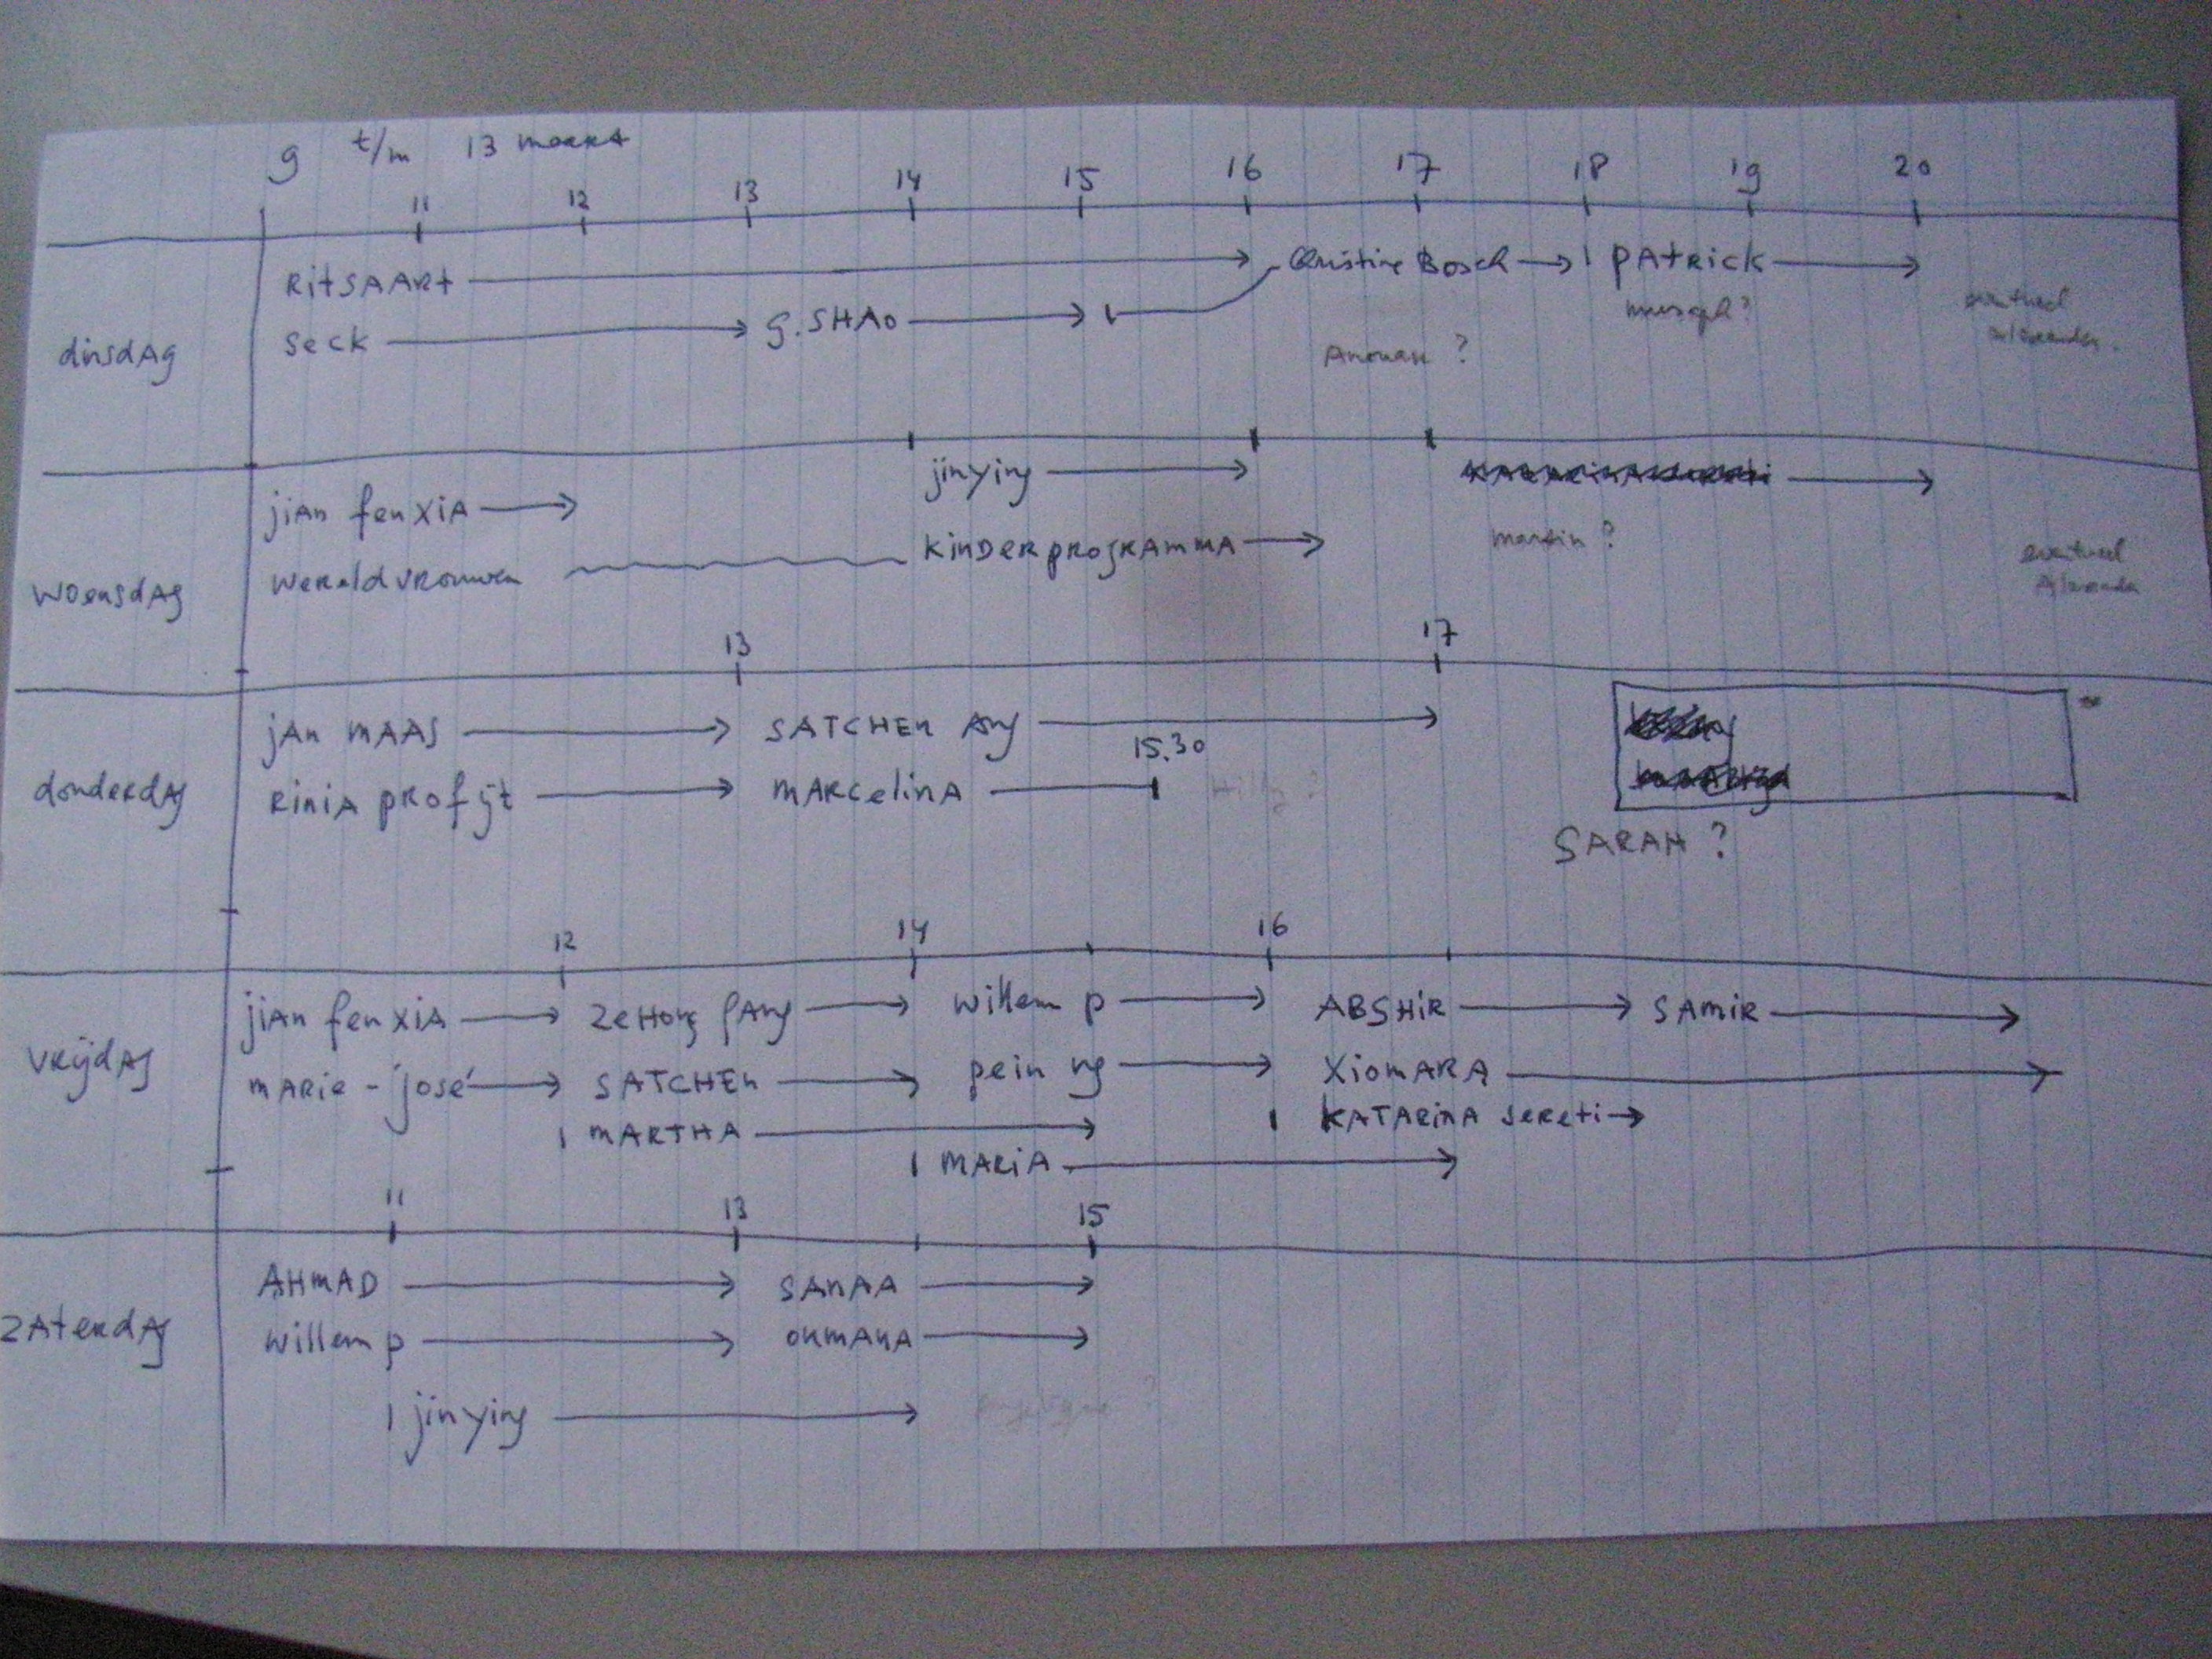 9 t/m 13 maart
11 12 13 14 15 16 17 18 19 20
dinsdag
Ritsaart Christine Bosch Patrick
Seck G. SHAo
Anouar ?
eventueel
woensdag
jian fen XiA jinying
wereldvrouwen kinderprogramma martin ?
eventueel
13 17
donderdag
jan maas SATCHEn Ang
15.30
Rinia profijt marcelina
SARAH ?
12 14 16
vrijdag
jian fen XiA ZeHong fAng willem p ABSHiR SAmiR
marie-josé SATCHEn pein ng XiomARA
MARTHA KATARinA sereti
MARiA
11 13 15
zaterdag
AHMAD SAnAA
willem p
jinying